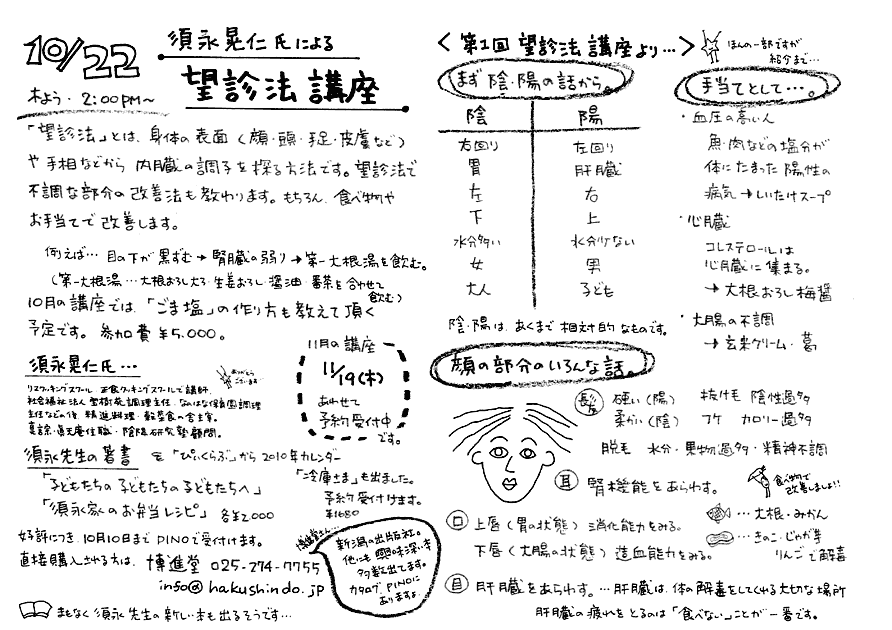 10/22
木よう・2:00PM~
須永晃仁氏による
望診法講座
「望診法」とは、身体の表面(顔・頭・手足・皮膚など)
や手相などから内臓の調子を探る方法です。望診法で
不調な部分の改善法も教わります。もちろん、食べ物や
お手当てで改善します。
例えば… 目の下が黒ずむ→腎臓の弱り→第一大根湯を飲む。
(第一大根湯…大根おろし大3・生姜おろし・醤油・番茶を合わせて
飲む)
10月の講座では、「ごま塩」の作り方も教えて頂く
予定です。参加費¥5,000。
須永晃仁氏…
ありがとう
ございます
リマクッキングスクール、正食クッキングスクールで講師、
主任などの後、精進料理・穀菜食の
11月の講座
11/19(木)
あわせて
予約受付中
です。
須永先生の著書
「子どもたちの子どもたちの子どもたちへ」
「須永家のお弁当レシピ」各¥2000
好評につき、10月10日までPINOで受付けます。
直接購入される方は、博進堂 025-274-7755
info@hakushindo.jp
まもなく須永先生の新しい本も出るそうです…
「ぴぃくらぶ」から2010年カレンダー
「冷庫さま」も出ました。
予約受付けます。
¥1680
博進堂さん…
新潟の出版社。
他にも興味深い本
多数出てます。
カタログ、PINOに
ありますよ
<第1回 望診法講座より…>
ほんの一部ですが
紹介まで…
まず陰・陽の話から。
陰 陽
右回り 左回り
胃 肝臓
左 右
下 上
水分多い 水分少ない
女 男
大人 子ども
陰・陽は、あくまで相対的なものです。
手当てとして…。
・血圧の高い人
魚・肉などの塩分が
体にたまった陽性の
病気→しいたけスープ
・心臓
コレステロールは
心臓に集まる。
→大根おろし梅醤
・大腸の不調
→玄米クリーム・葛
顔の部分のいろんな話。
髪 硬い(陽) 抜け毛 陰性過多
柔かい(陰) フケ カロリー過多
脱毛 水分・果物過多・精神不調
耳 腎機能をあらわす。
食べ物で
改善しましょ!!
口 上唇(胃の状態) 消化能力をみる。
…大根・みかん
下唇(大腸の状態) 造血能力をみる。
…きのこ・じゃが芋
りんごで解毒
目 肝臓をあらわす。…肝臓は、体の解毒をしてくれる大切な場所
肝臓の疲れをとるのは「食べない」ことが一番です。